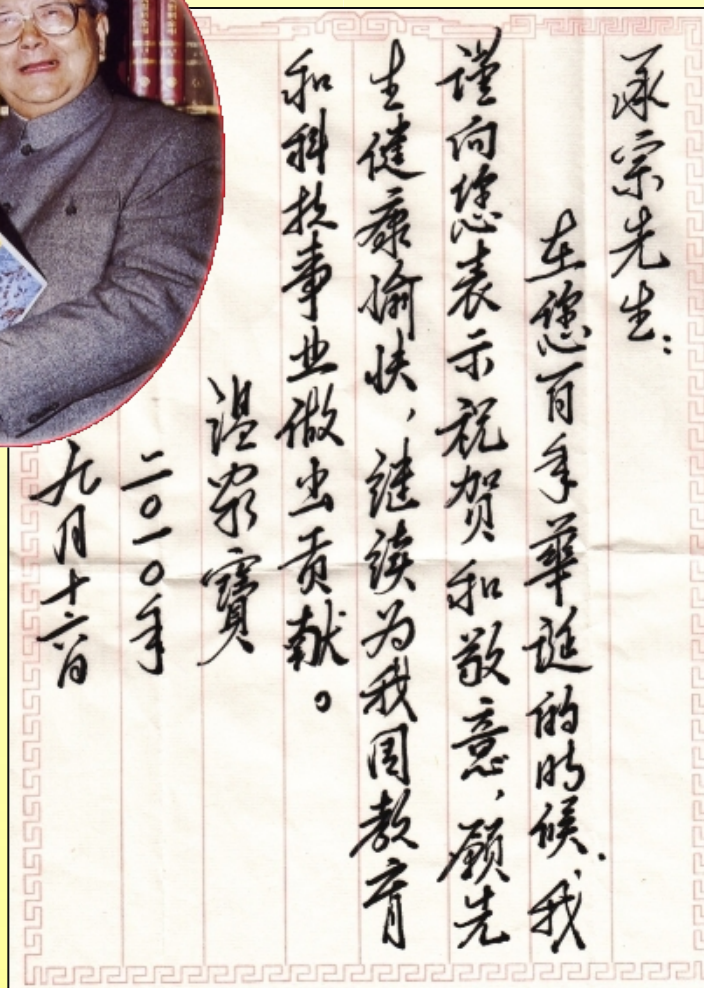 承宗先生：
在您百年华诞的时候，我
谨向您表示祝贺和敬意，愿先
生健康愉快，继续为我国教育
和科技事业做出贡献。
温家寳
二〇一〇年
九月十六日